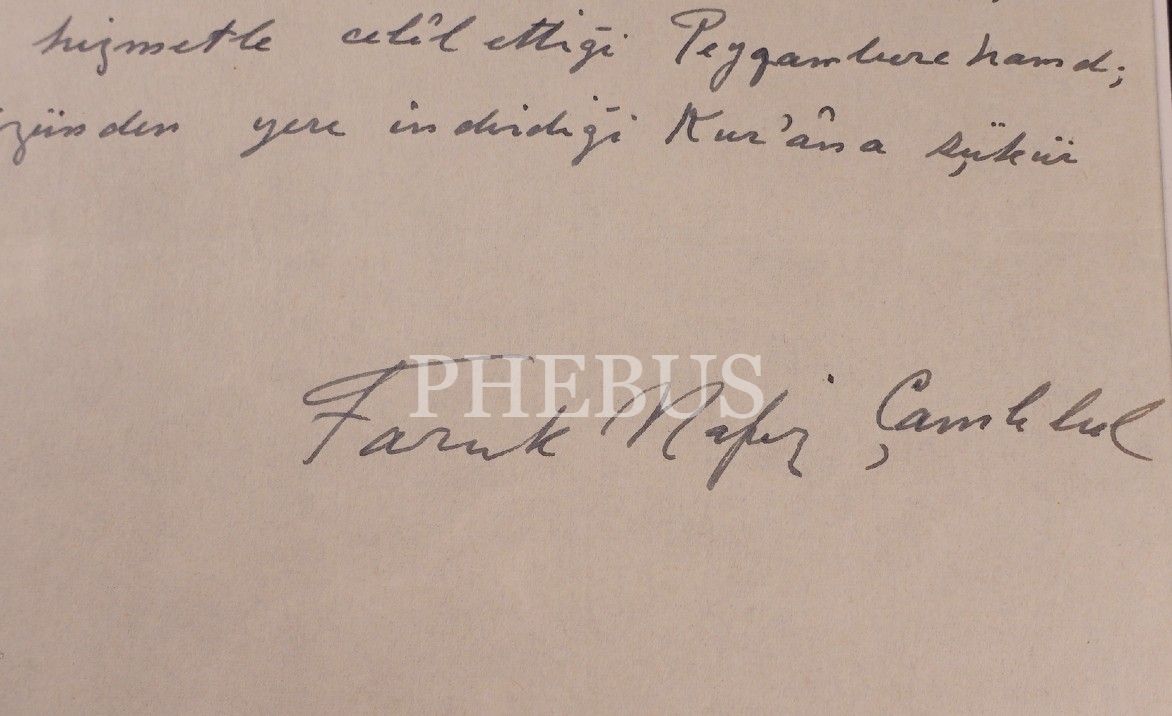 hizmetle celîl ettiği Peygambere hamd;
yere indirdiği Kur'âna şükür
PHEBUS
Faruk Nafiz Çamlıbel